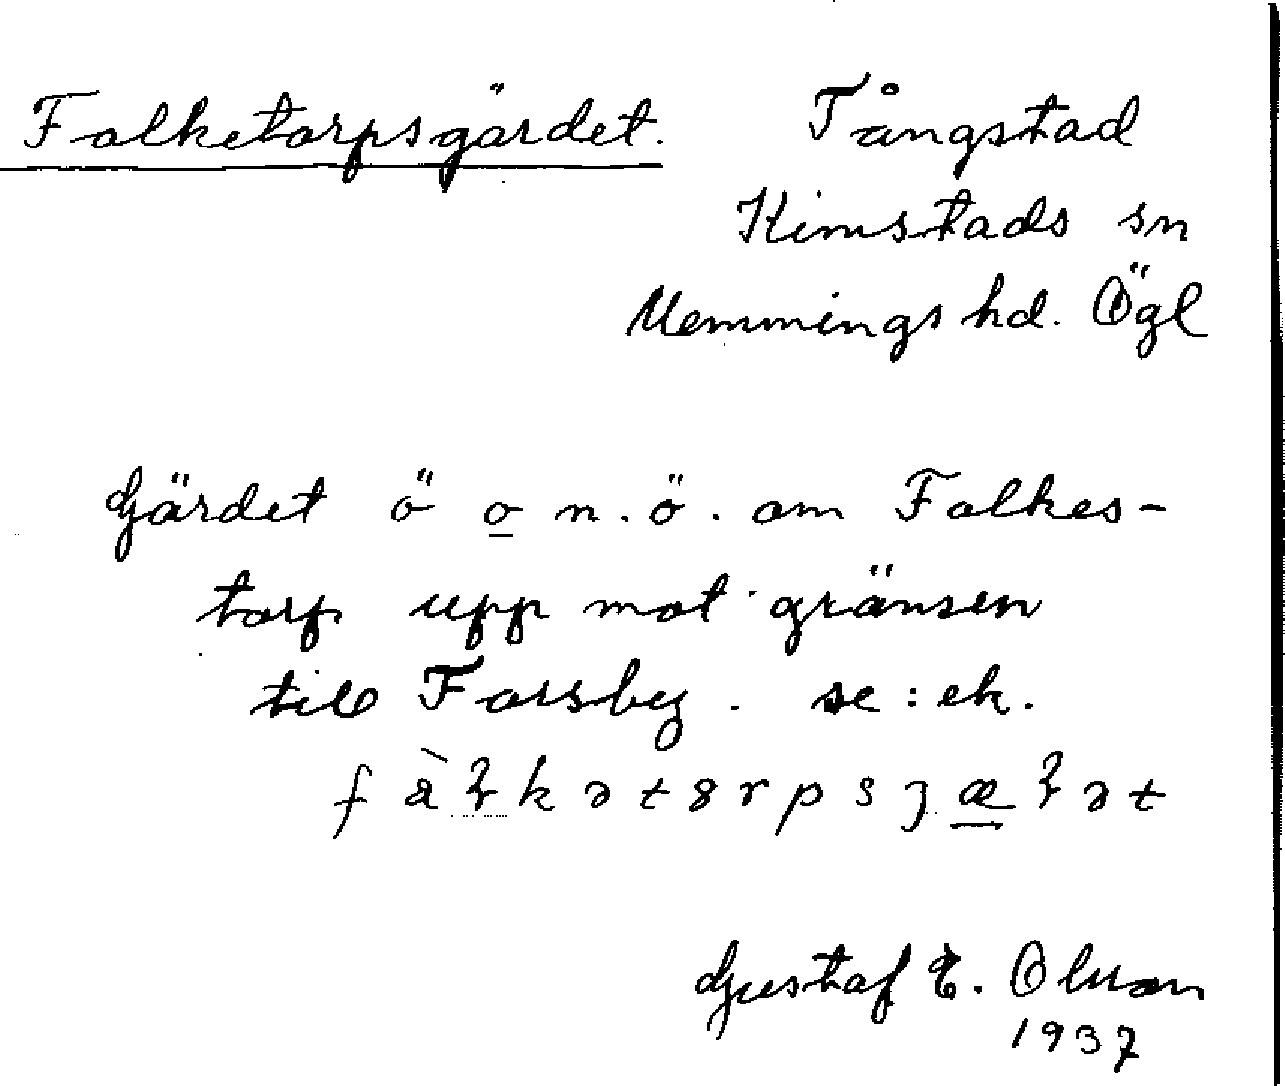 Falketorpsgärdet. Tångstad
Kimstads sn
Memmings hd. Ögl
Gärdet ö o n.ö. om Falkes-
torp upp mot gränsen
till Forsby. se: ek.
Gustaf E. Olsson
1937